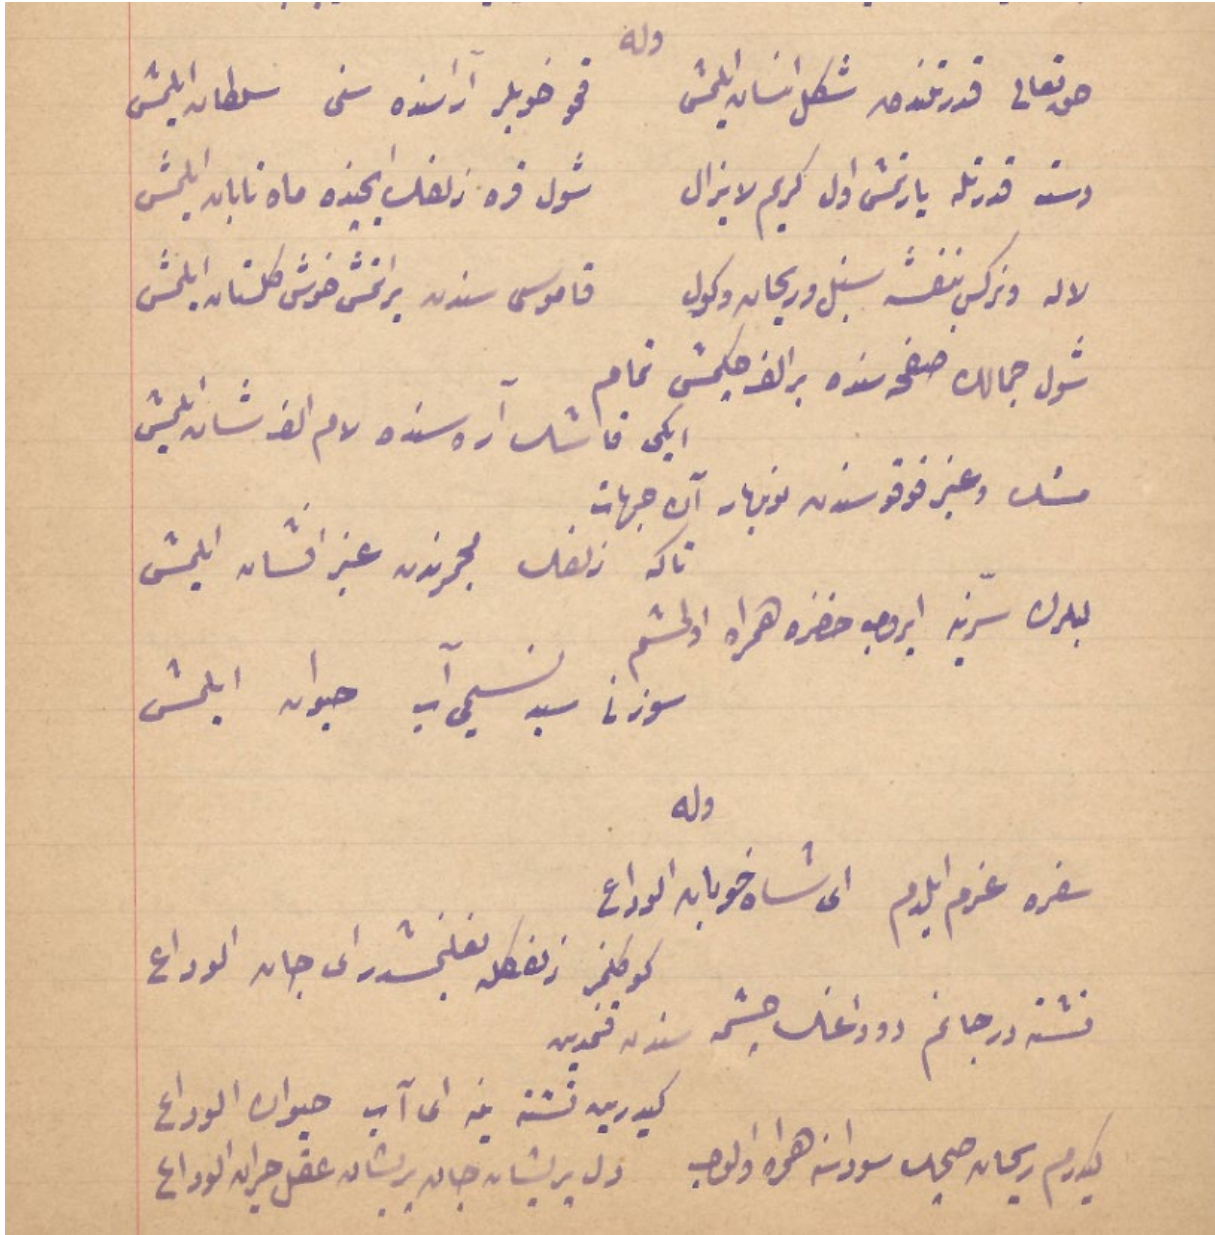 وله
حق تعالی قدرتندن شکل انسان ایلمش قمو خوبلر آراسنده سنی سلطان ایلمش
دست قدرتله یارتمش اول کریم لایزال شول قره زلفك ایچنده ماه تابان ایلمش
لاله ونرکس بنفشه سنبل وریحان وکول قاموسی سندن یراتمش خوش کلستان ایلمش
شول جمالك صفحه سنده بر الف چکمش تمام
ایکی قاشك آره سنده لام الف شان ایلمش
مسك وعنبر قوقوسندن نوبهار آن جهات
تاکه زلفك مجمرندن عنبر افشان ایلمش
لبلرك سرّینه ایروب خضره همراه اولمشم
سوزنی سید نسیمی آب حیوان ایلمش
وله
سفره عزم ایلدم ای شاه خوبان الوداع
کوکلمز زلفکله بغلنمشدر ای جان الوداع
تشنه در جانم دوداغك چشمه سندن قنمدین
کیدرین تشنه ینه ای آب حیوان الوداع
کیدرم ریحان صاچك سوداسنه همراه اولوب دل پریشان جان پریشان عقل حیران الوداع